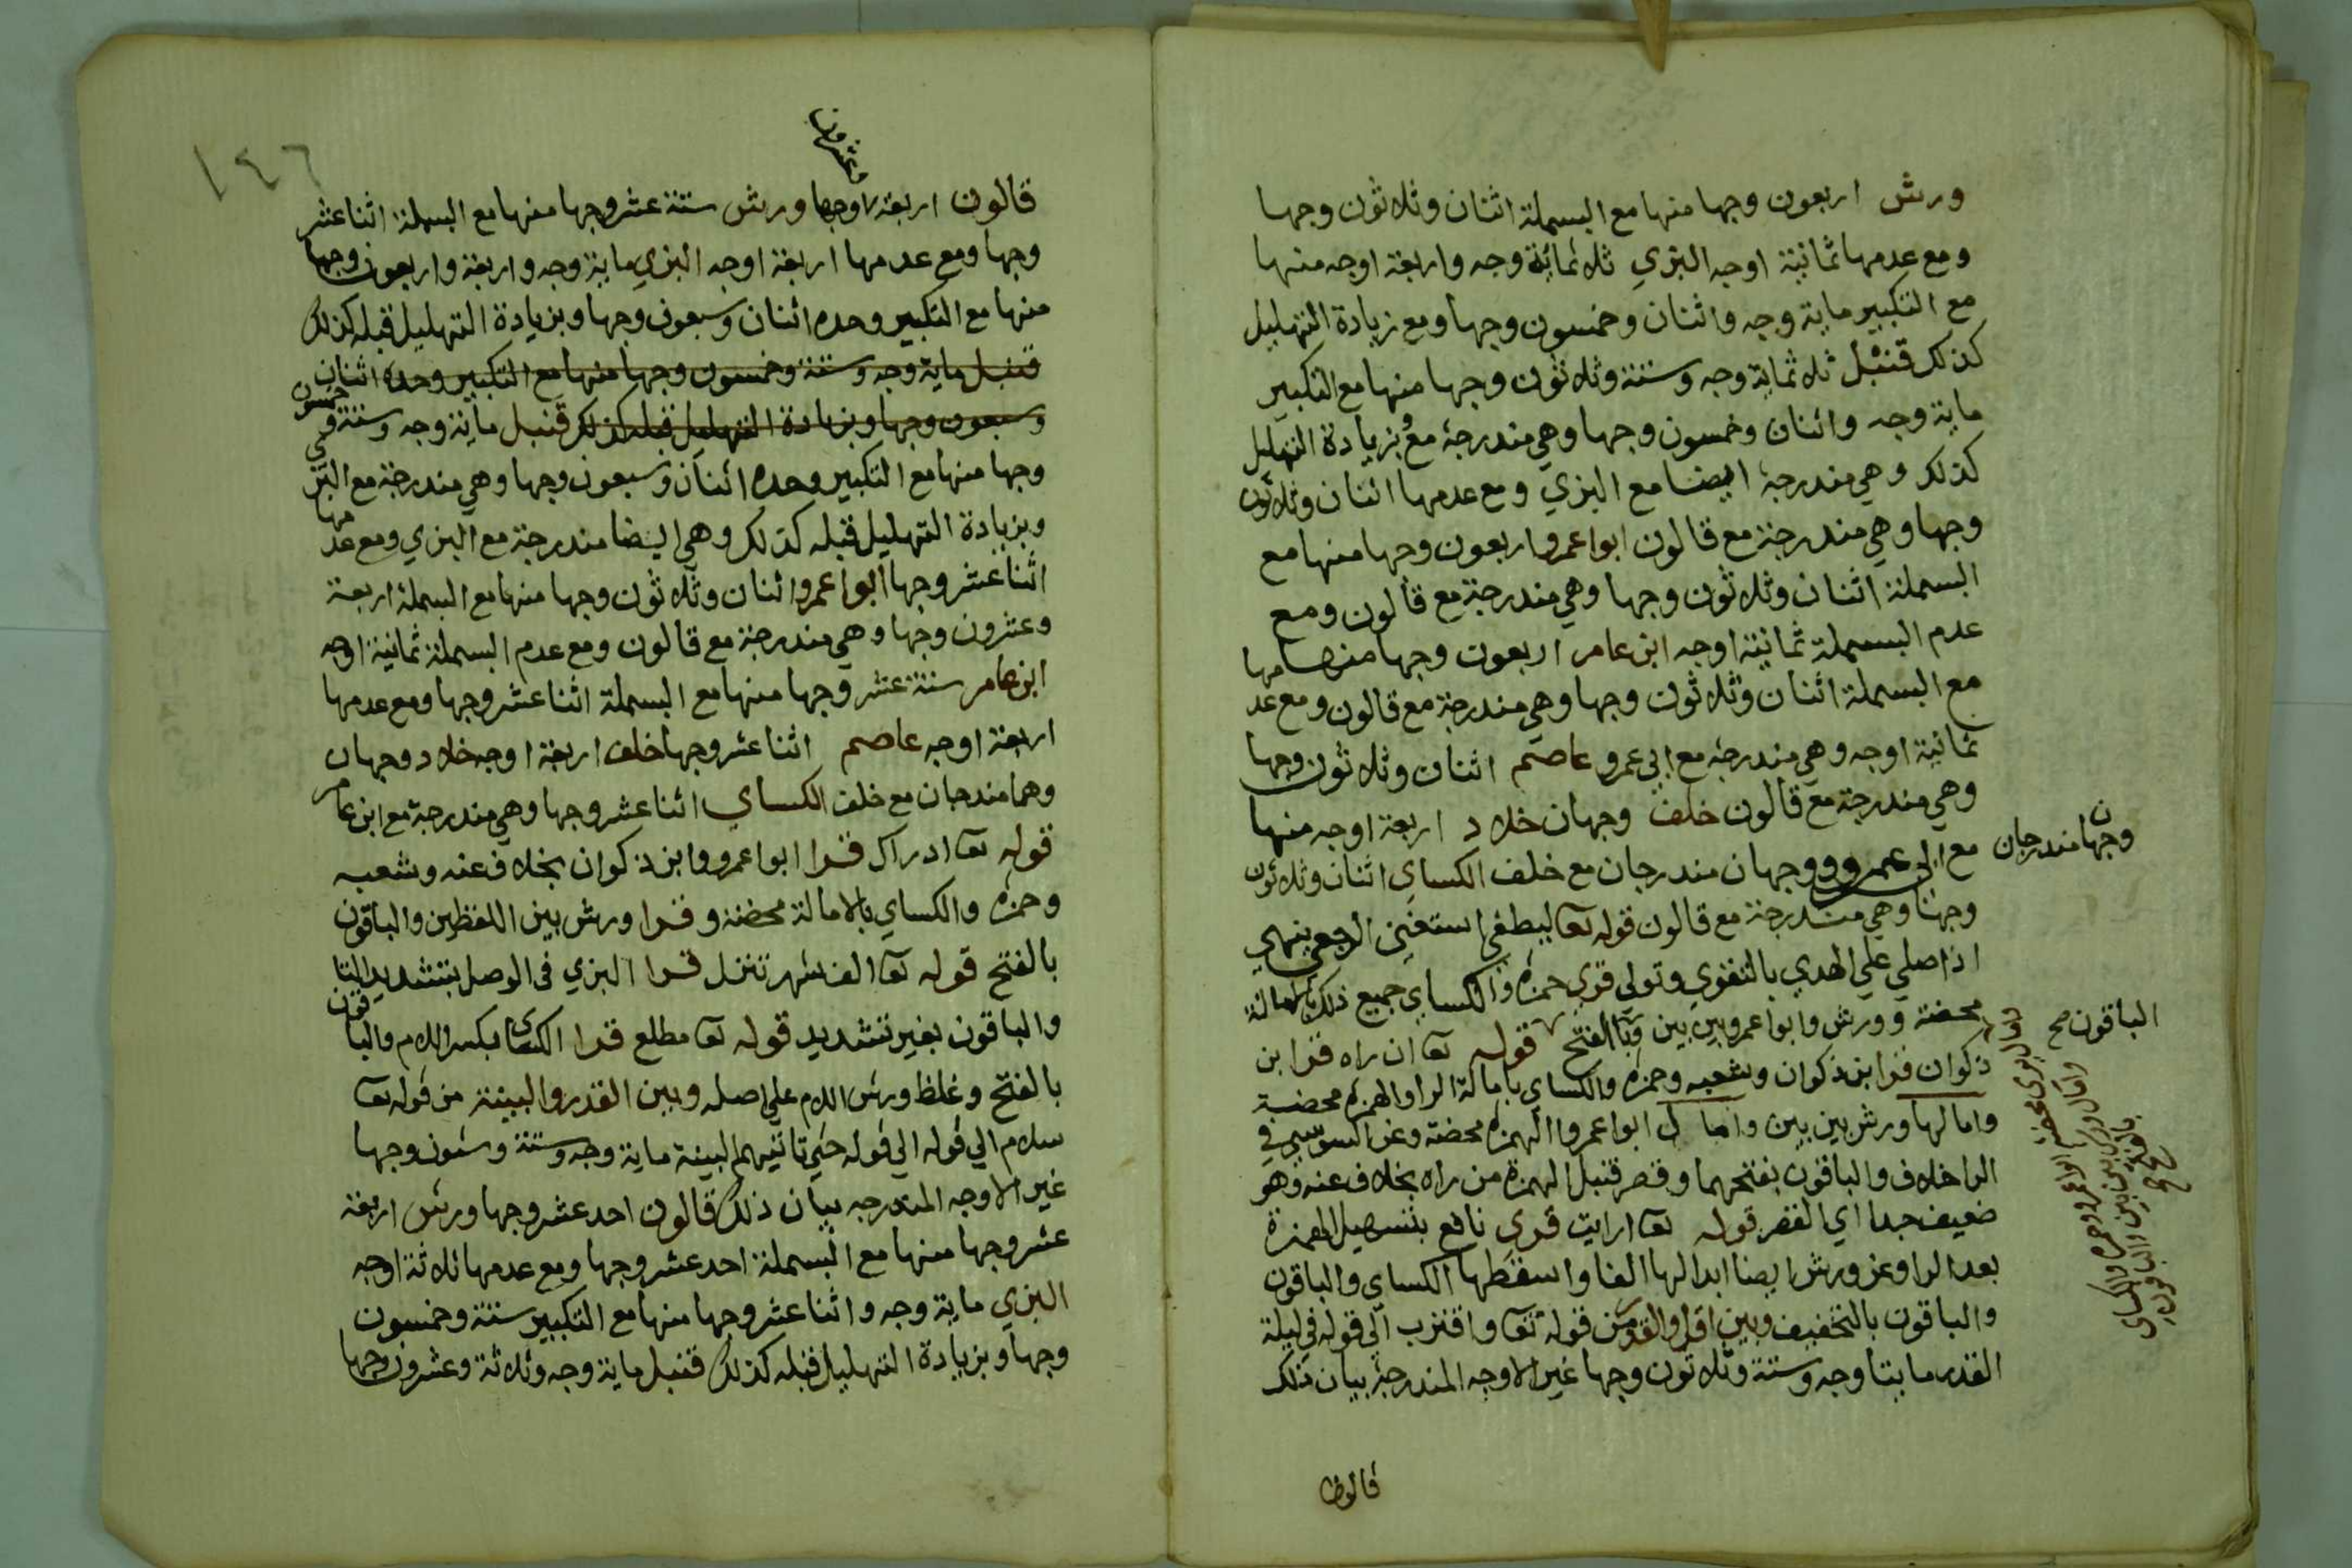 ورش اربعون وجها منها مع البسملة اثنان وثلاثون وجها
ومع عدمها ثمانية اوجه البزي ثلاثمائة وجه واربعة اوجه منها
مع التكبير ماية وجه واثنان وخمسون وجها ومع زيادة التهليل
كذلك قنبل ثلاثماية وجه وستة وثلاثون وجها منها مع التكبير
ماية وجه واثنان وخمسون وجها وهي مندرجة معه وبزيادة التهليل
كذلك وهي مندرجة ايضا مع البزي ومع عدمها اثنان وثلاثون
وجها وهي مندرجة مع قالون ابوا عمرو اربعون وجها منها مع
البسملة اثنان وثلاثون وجها وهي مندرجة مع قالون ومع
عدم البسملة ثمانية اوجه ابن عامر اربعون وجها منها
مع البسملة اثنان وثلاثون وجها وهي مندرجة مع قالون ومع عدمها
ثمانية اوجه وهي مندرجة مع ابي عمرو عاصم اثنان وثلاثون وجها
وهي مندرجة مع قالون خلف وجهان خلاد اربعة اوجه منها
وجهان مندرجان
مع ابي عمرو ووجهان مندرجان مع خلف الكساي اثنان وثلاثون
وجها وهي مندرجة مع قالون قوله تعا ليطغى استغنى الرجعى ينهى
اذا صلي علي الهدي بالتقوي وتولى قري حمزة والكساي جميع ذلك بالامالة
محضة وورش وابوا عمرو بين بين بالفتح قوله تعا ان راه قرا ابن
الباقون صح
ذكوان قرا ابن ذكوان وشعبه وحمزة والكساي بامالة الرا والهمزة محضة
وامالها ورش بين بين وامال ابوا عمرو الهمزة محضة وعن السوسي في
الرا خلاف والباقون بفتحهما وقصر قنبل الهمزة من راه بخلاف عنه وهو
ضعيف جدا اي القصر قوله تعا ارايت قري نافع بتسهيل الهمزة
بعد الرا وعن ورش ايضا ابدالها الفا واسقطها الكساي والباقون
والباقون بالتخفيف وبين اقرا والقدر من قوله تعا واقترب الي قوله في ليلة
القدر مايتا وجه وستة وثلاثون وجها غير الاوجه المندرجة بيان ذلك
قالون
١٤٦
وعشرون
قالون اربعة وجها ورش ستة عشر وجها منها مع البسملة اثنا عشر
وجها ومع عدمها اربعة اوجه البزي ماية وجه واربعة واربعون وجها
منها مع التكبير وحده اثنان وسبعون وجها وبزيادة التهليل قبله كذلك
قنبل ماية وجه وستة وخمسون وجها منها مع التكبير وحده اثنان
وسبعون وجها وبزيادة التهليل قبله كذلك قنبل ماية وجه وستة وخمسون
وجها منها مع التكبير وحده اثنان وسبعون وجها وهي مندرجة مع البزي
وبزيادة التهليل قبله كذلك وهي ايضا مندرجة مع البزي ومع عدمها
اثنا عشر وجها ابوا عمرو اثنان وثلاثون وجها منها مع البسملة اربعة
وعشرون وجها وهي مندرجة مع قالون ومع عدم البسملة ثمانية اوجه
ابن عامر ستة عشر وجها منها مع البسملة اثنا عشر وجها ومع عدمها
اربعة اوجه عاصم اثنا عشر وجها خلف اربعة اوجه خلاد وجهان
وهما مندرجان مع خلف الكساي اثنا عشر وجها وهي مندرجة مع ابن عامر
قوله تعا ادراك قرا ابوا عمرو وابن ذكوان بخلاف عنه وشعبه
وحمزه والكساي بالامالة محضة وقرا ورش بين اللفظين والباقون
بالفتح قوله تعا الف شهر تنزل قرا البزي في الوصل بتشديد التا
والباقون بغير تشديد قوله تعا مطلع قرا الكساي بكسر اللام والباقون
بالفتح وغلظ ورش اللام علي اصله وبين القدر والبينة من قوله تعا
سلام الي قوله الي قوله حتي تاتيهم البينة ماية وجه وستة وستون وجها
غير الاوجه المندرجه بيان ذلك قالون احد عشر وجها ورش اربعة
عشر وجها منها مع البسملة احد عشر وجها ومع عدمها ثلاثة اوجه
البزي ماية وجه واثنا عشر وجها منها مع التكبير ستة وخمسون
وجها وبزيادة التهليل قبله كذلك قنبل ماية وجه وثلاثة وعشرون وجها